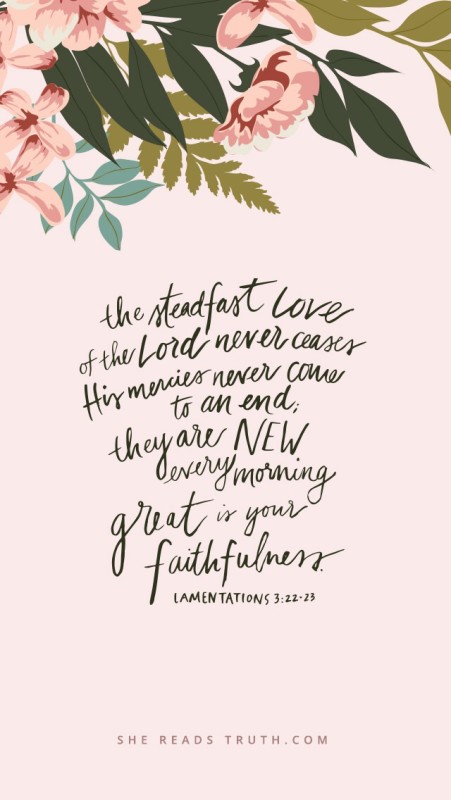 the steadfast love
of the Lord never ceases
His mercies never come
to an end;
they are NEW
every morning
great is your
faithfulness.
LAMENTATIONS 3:22-23
SHE READS TRUTH.COM